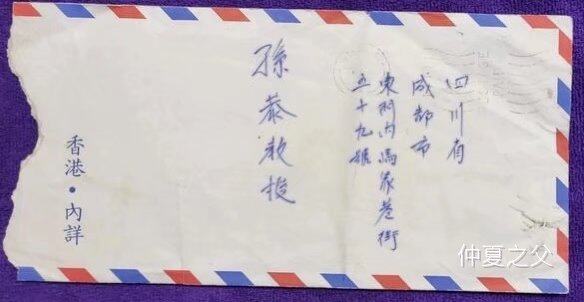 四川省
成都市
東門內馮家巷街
五十九號
孫恭教授
香港·內詳
仲夏之父